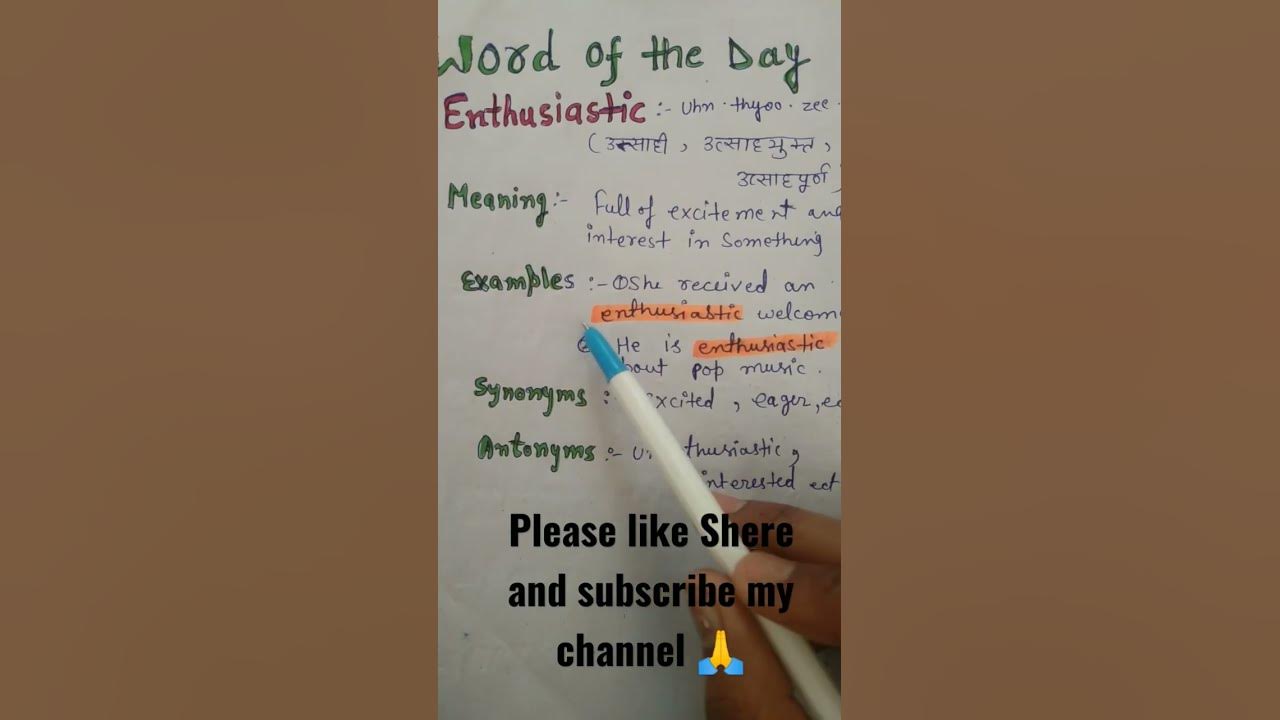 Word of the Day
Enthusiastic :- Uhn · thyoo · zee ·
(उत्साही , उत्साहयुक्त ,
उत्साहपूर्ण )
Meaning :- Full of excitement and
interest in Something
Examples :- ①She received an
enthusiastic welcom
He is enthusiastic
bout pop music .
Synonyms : xcited , eager, ec
Antonyms :- thusiastic ,
nterested ect
Please like Shere
and subscribe my
channel 🙏